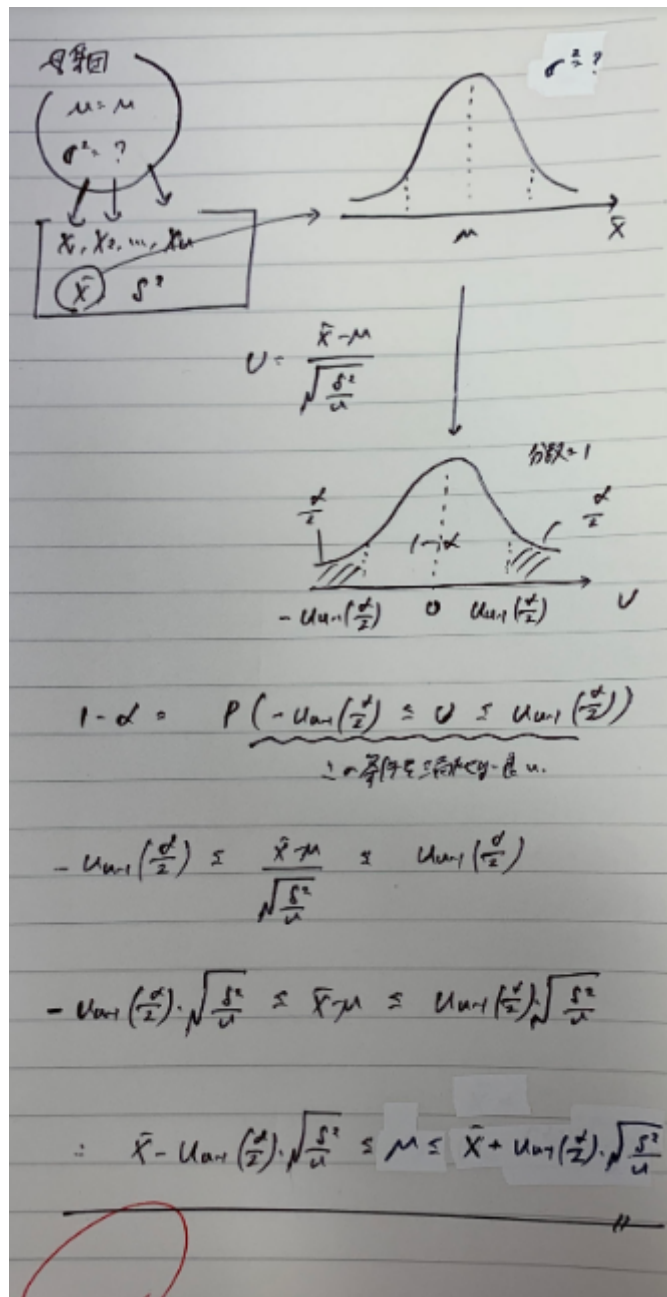 母集団
μ = μ
σ² = ?
X₁, X₂, ..., Xₙ
X̄ S²
σ² = ?
μ X̄
U = (X̄-μ)/√(S²/n)
分散=1
α/2 1-α α/2
-uₙ₋₁(α/2) 0 uₙ₋₁(α/2) U
1-α = P(-uₙ₋₁(α/2) ≤ U ≤ uₙ₋₁(α/2))
-uₙ₋₁(α/2) ≤ (X̄-μ)/√(S²/n) ≤ uₙ₋₁(α/2)
-uₙ₋₁(α/2)·√(S²/n) ≤ X̄-μ ≤ uₙ₋₁(α/2)·√(S²/n)
∴ X̄-uₙ₋₁(α/2)·√(S²/n) ≤ μ ≤ X̄+uₙ₋₁(α/2)·√(S²/n)